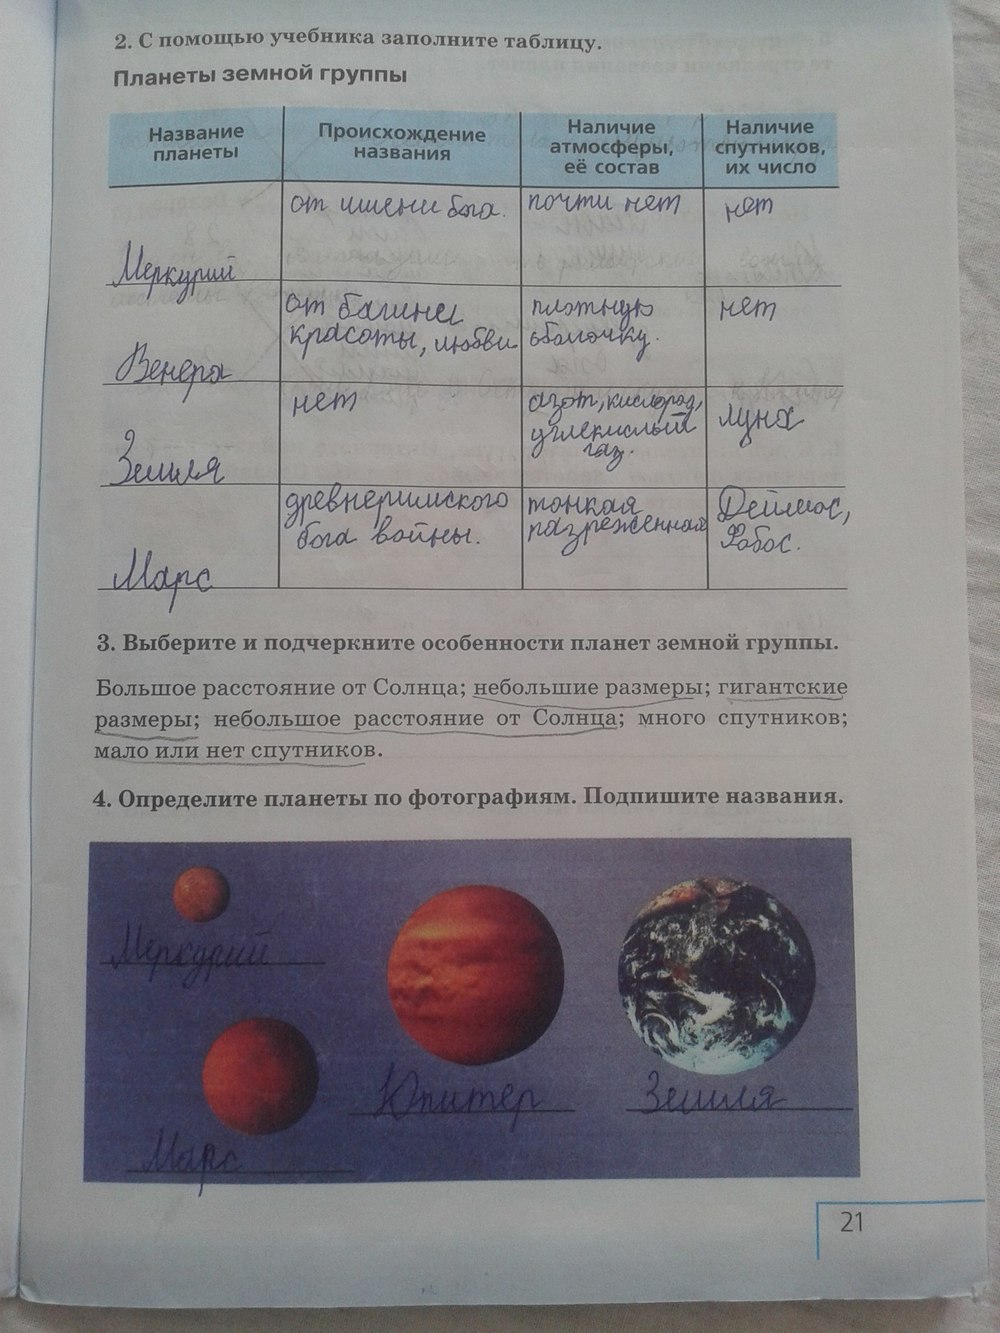 2. С помощью учебника заполните таблицу.
Планеты земной группы
Название
планеты
Происхождение
названия
Наличие
атмосферы,
её состав
Наличие
спутников,
их число
Меркурий
от имени бога.
почти нет
нет
Венера
от багини
красоты, любви
плотную
оболочку.
нет
Земля
нет
азот, кислород,
углекислый
газ.
луна
Марс
древнеримского
бога войны.
тонкая
разреженная
Деймос,
Фобос.
3. Выберите и подчеркните особенности планет земной группы.
Большое расстояние от Солнца; небольшие размеры; гигантские
размеры; небольшое расстояние от Солнца; много спутников;
мало или нет спутников.
4. Определите планеты по фотографиям. Подпишите названия.
Меркурий
Юпитер
Земля
Марс
21